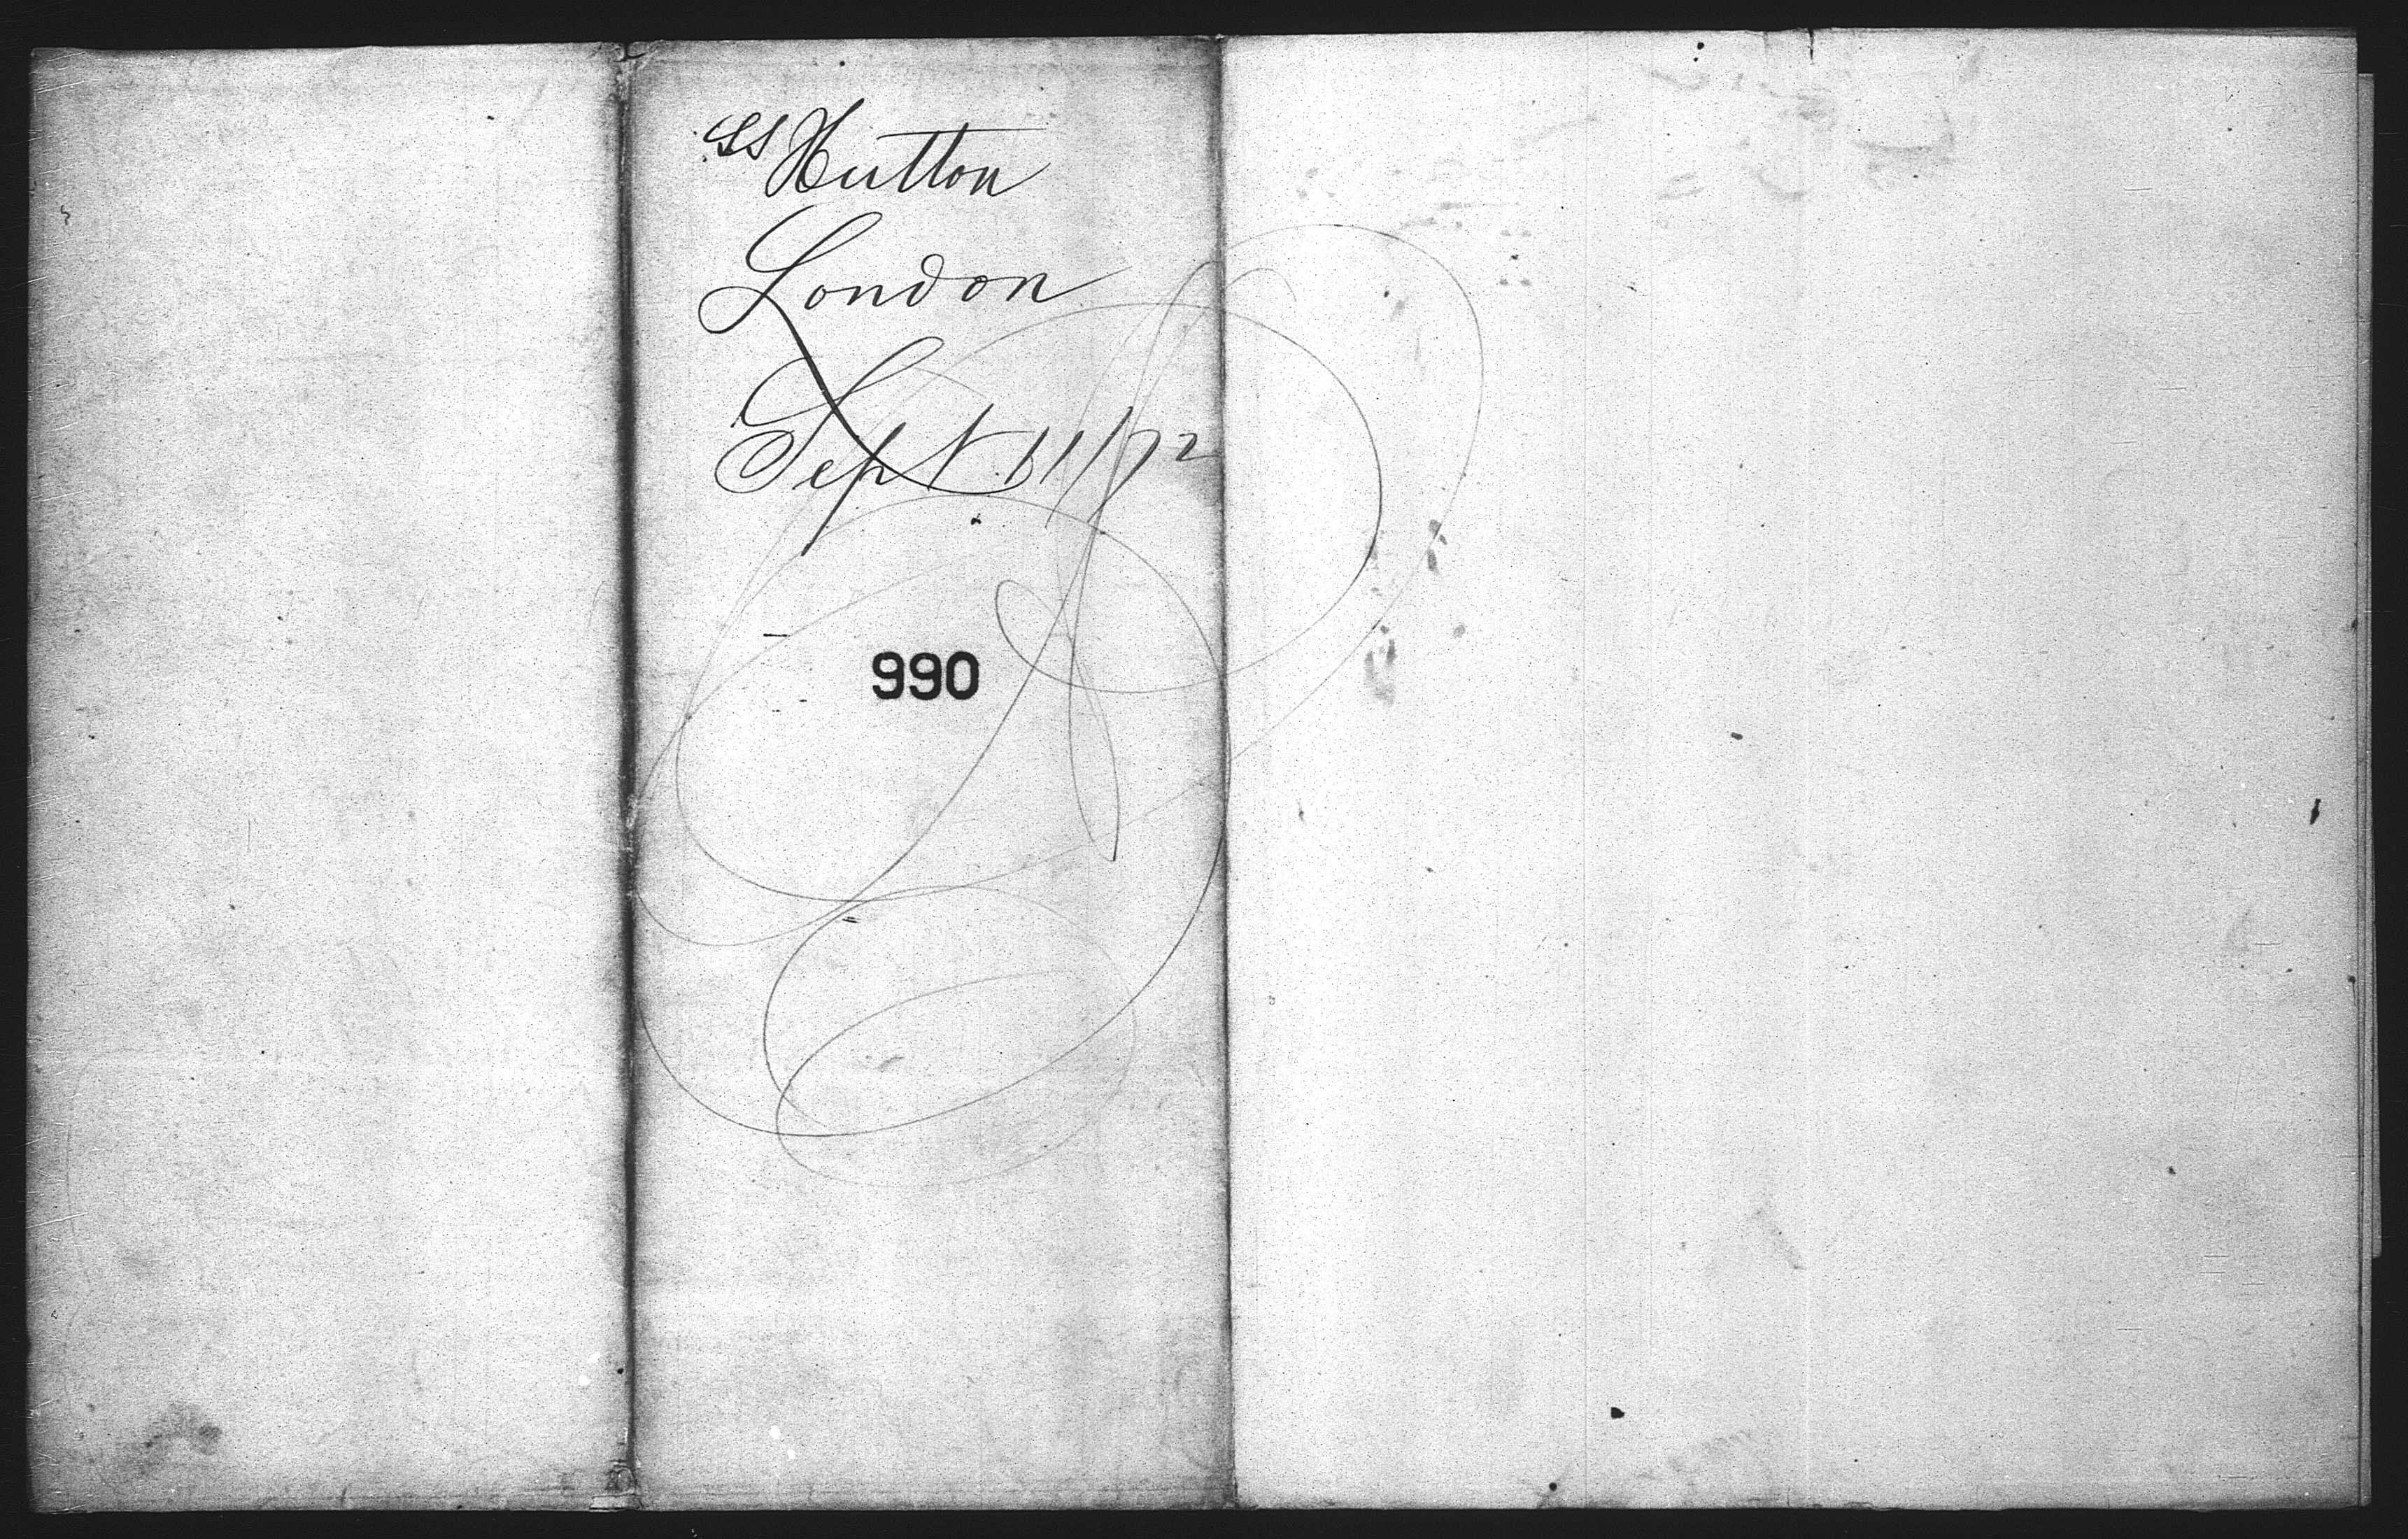 SS Hutton
London
Sept. 11/72
990